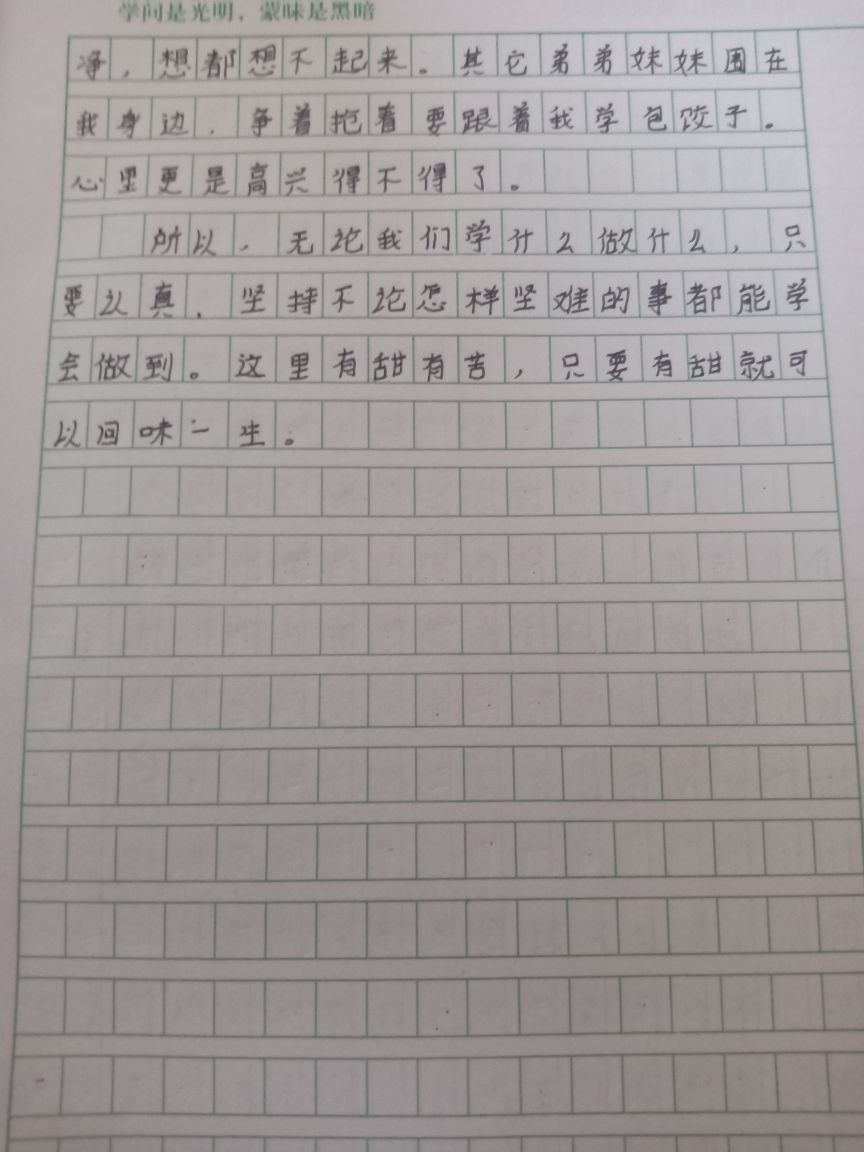 学问是光明，蒙昧是黑暗
净，想都想不起来。其它弟弟妹妹围在
我身边，争着抢着要跟着我学包饺子。
心里更是高兴得不得了。
所以，无论我们学什么做什么，只
要认真、坚持不论怎样坚难的事都能学
会做到。这里有甜有苦，只要有甜就可
以回味一生。